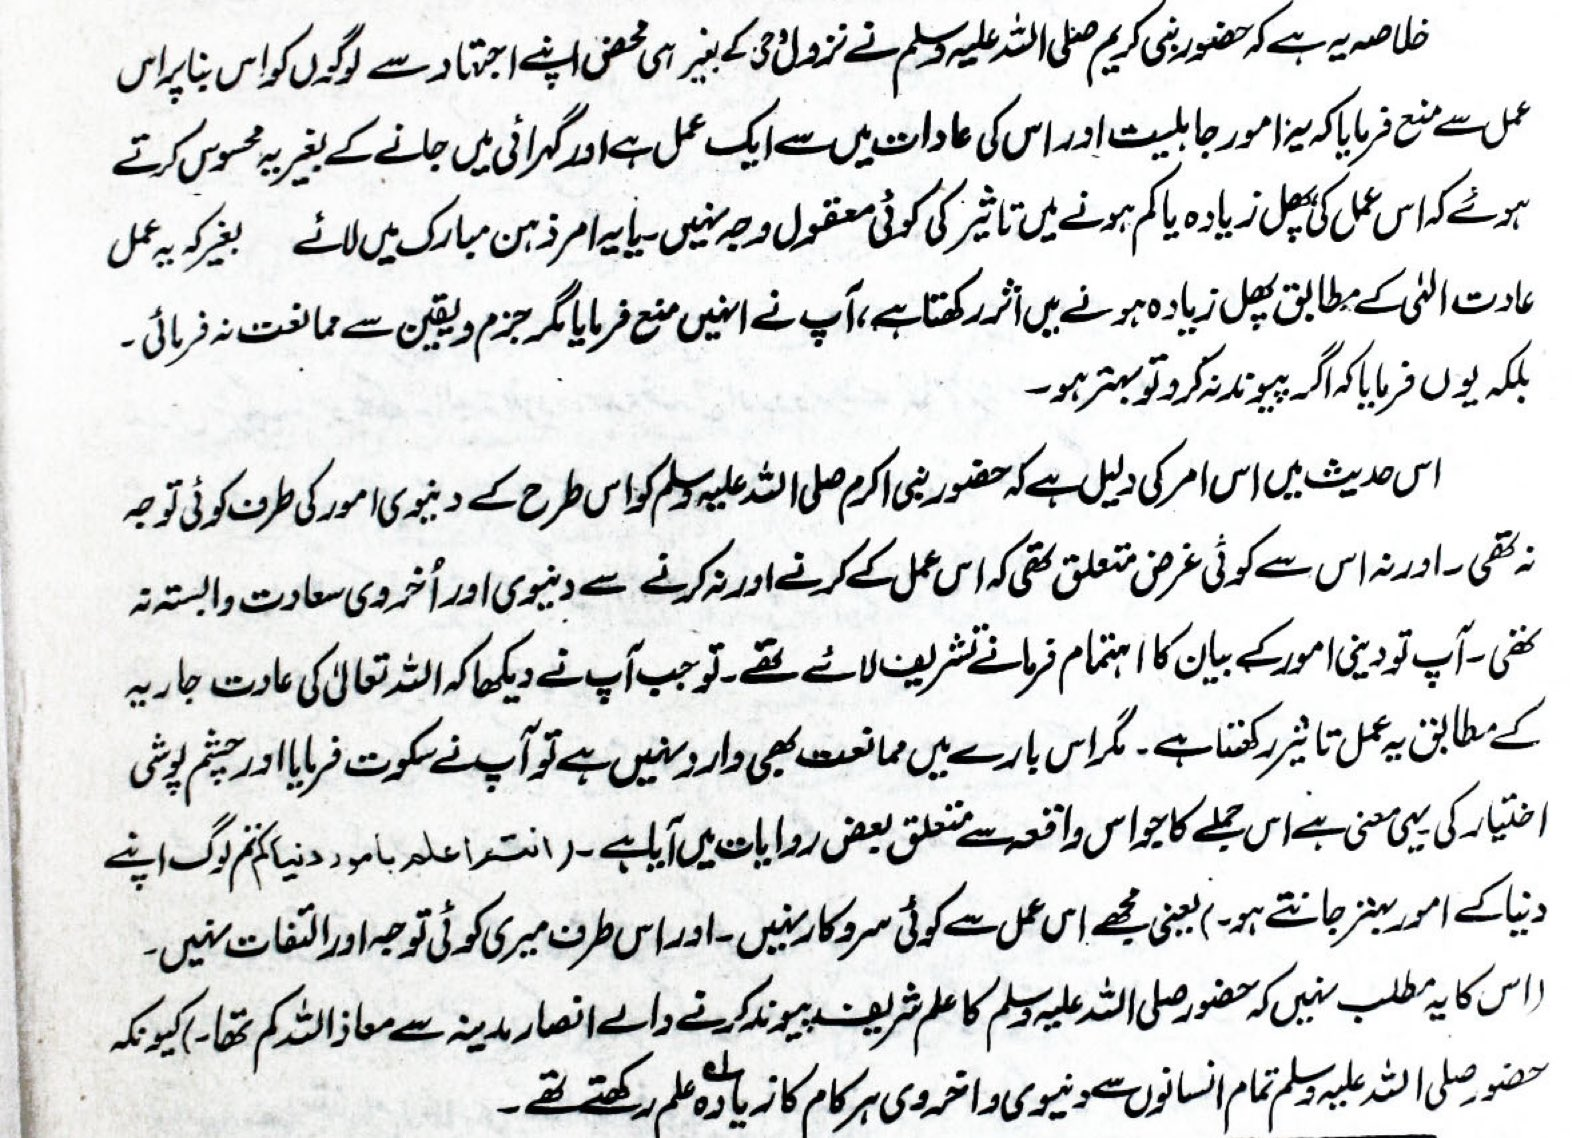 خلاصہ یہ ہے کہ حضور نبی کریم صلی اللہ علیہ وسلم نے نزول وحی کے بغیر ہی محض اپنے اجتہاد سے لوگوں کو اس بنا پر اس
عمل سے منع فرمایا کہ یہ امور جاہلیت اور اس کی عادات میں سے ایک عمل ہے اور گہرائی میں جانے کے بغیر یہ محسوس کرتے
ہوئے کہ اس عمل کی پھل زیادہ یا کم ہونے میں تاثیر کی کوئی معقول وجہ نہیں۔ یا یہ امر ذہن مبارک میں لائے بغیر کہ یہ عمل
عادت الٰہی کے مطابق پھل زیادہ ہونے میں اثر رکھتا ہے، آپ نے انہیں منع فرمایا مگر جزم و یقین سے ممانعت نہ فرمائی۔
بلکہ یوں فرمایا کہ اگر پیوند نہ کرو تو بہتر ہو۔
اس حدیث میں اس امر کی دلیل ہے کہ حضور نبی اکرم صلی اللہ علیہ وسلم کو اس طرح کے دنیوی امور کی طرف کوئی توجہ
نہ تھی۔ اور نہ اس سے کوئی غرض متعلق تھی کہ اس عمل کے کرنے اور نہ کرنے سے دنیوی اور اُخروی سعادت وابستہ نہ
تھی۔ آپ تو دینی امور کے بیان کا اہتمام فرمانے تشریف لائے تھے۔ تو جب آپ نے دیکھا کہ اللہ تعالیٰ کی عادت جاریہ
کے مطابق یہ عمل تاثیر رکھتا ہے۔ مگر اس بارے میں ممانعت بھی وارد نہیں ہے تو آپ نے سکوت فرمایا اور چشم پوشی
اختیار کی یہی معنی ہے اس جملے کا جو اس واقعہ سے متعلق بعض روایات میں آیا ہے۔ (انتم اعلم بامور دنیاکم تم لوگ اپنے
دنیا کے امور بہتر جانتے ہو۔) یعنی مجھے اس عمل سے کوئی سروکار نہیں۔ اور اس طرف میری کوئی توجہ اور التفات نہیں۔
(اس کا یہ مطلب نہیں کہ حضور صلی اللہ علیہ وسلم کا علم شریف پیوند کرنے والے انصار مدینہ سے معاذ اللہ کم تھا۔) کیونکہ
حضور صلی اللہ علیہ وسلم تمام انسانوں سے دنیوی و اخروی ہر کام کا زیادہ علم رکھتے تھے۔